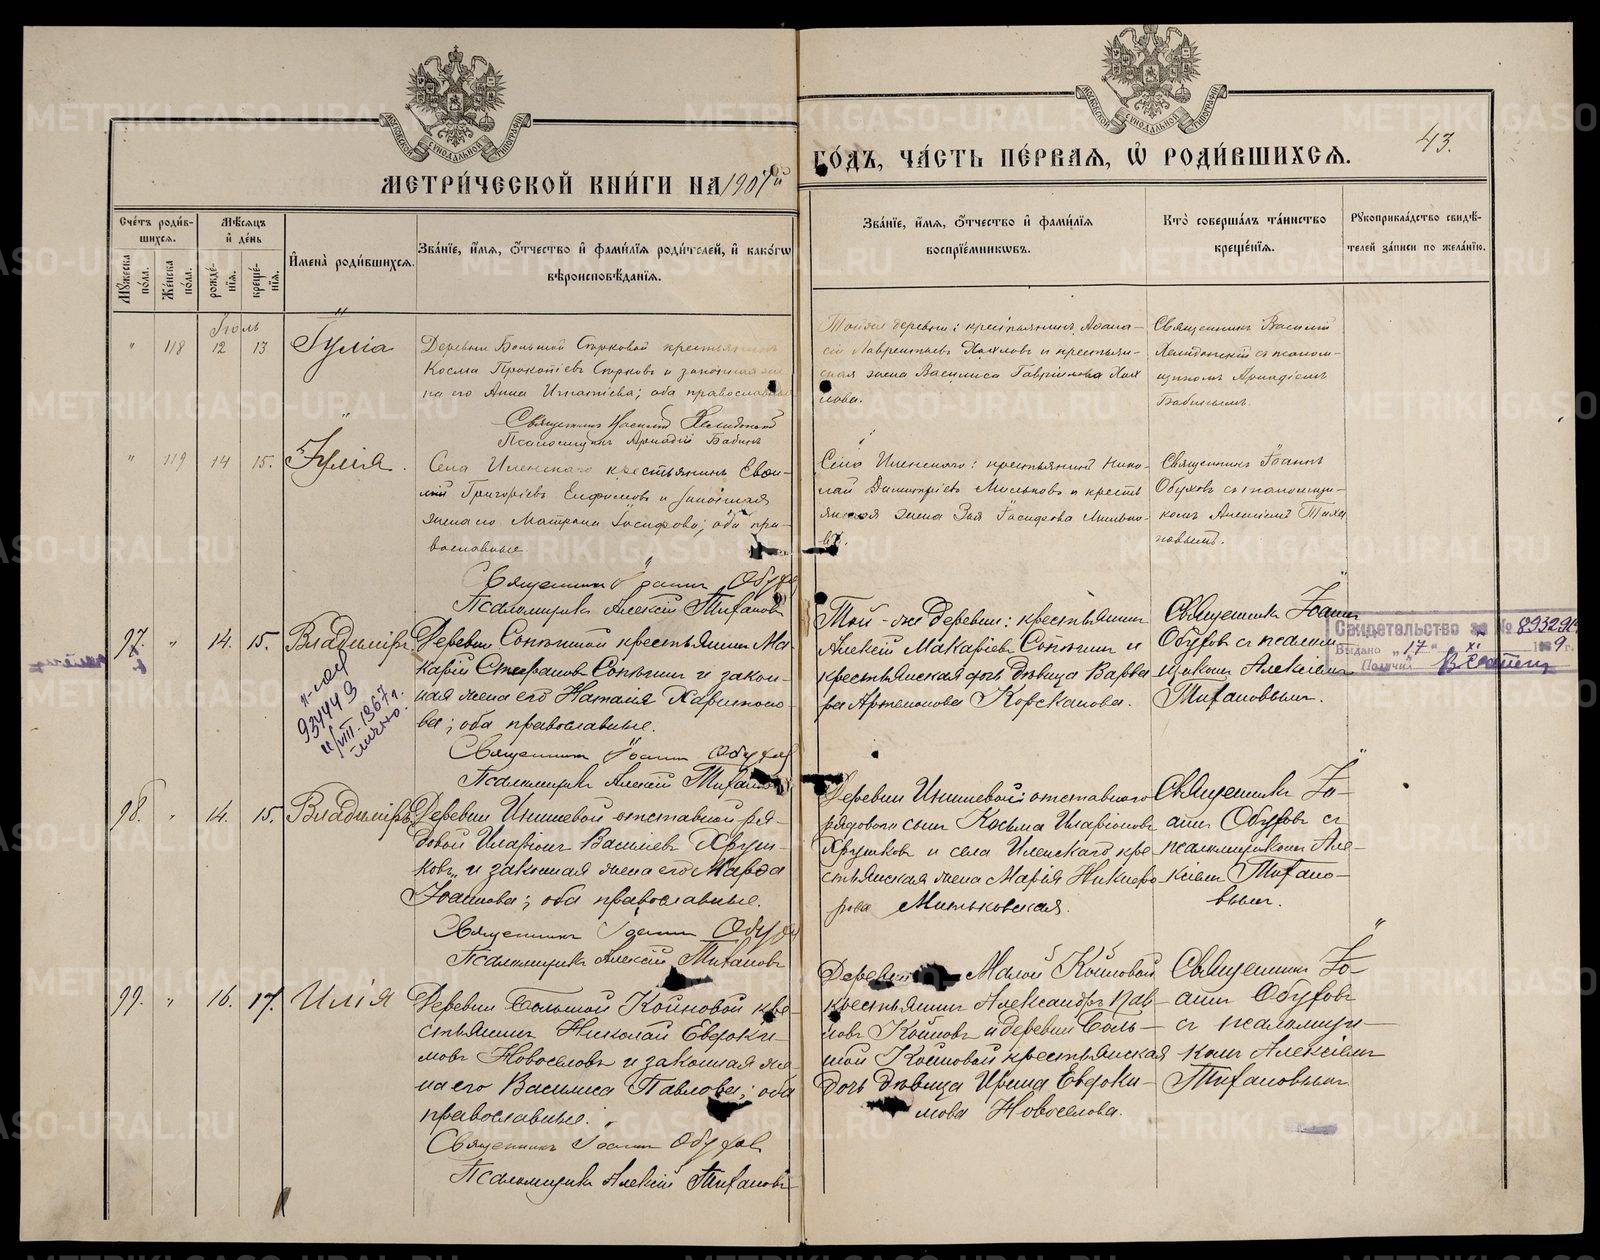 43.
МЕТРИ́ЧЕСКОЙ КНИ́ГИ НА 1907й
ГО́ДЪ, ЧА́СТЬ ПЕ́РВАЯ, Ѡ҆ РОДИ́ВШИХСЯ.
Сче́тъ роди́вшихся.
Мѣ́сяцъ и҆ де́нь
И҆мена̀ роди́вшихся.
Зва́нїе, и҆́мя, ѻ҆́тчество и҆ фами́лїя роди́телей, и҆ како́гѡ
вѣроисповѣ́данїя.
Зва́нїе, и҆́мя, ѻ҆́тчество и҆ фами́лїя
воспрїе́мниковъ.
Кто̀ соверша́лъ та́инство
креще́нїя.
Рꙋкоприкла́дство свидѣ́-
телей за́писи по жела́нїю.
Мꙋ́жеска по́ла.
Же́нска по́ла.
рожде́нїя.
креще́нїя.
Іюль
" 118 12 13 Іулія
Деревни Большой крестьянинъ
Косма Прокопіевъ и законная же
на его Анна Игнатіева; оба православные
Священникъ Василій Хелидонскій
Псаломщикъ Аркадій Бабинъ
Той же деревни: крестьянинъ
Лаврентьевъ и крестьян-
ская жена Василиса Гаврилова
лова.
Священникъ Василій
Хелидонскій съ псалом-
щикомъ Аркадіемъ
Бабинымъ.
" 119 14 15. Іулія.
Села Иленскаго крестьянинъ
Григоріевъ и законная
жена его Матрона Іосифова; оба пра-
вославные
Священникъ Іоаннъ Обухов
Псаломщикъ Алексій Тихановъ
Села Иленскаго: крестьянинъ Нико-
лай Димитріевъ Мильковъ и кресть
янская жена Зоя Милько-
ва.
Священникъ Іоаннъ
Обуховъ съ псаломщи-
комъ Алексіемъ Тиха
новымъ.
97. " 14. 15. Владиміръ
Деревни крестьянинъ Ма-
карій Стефановъ и закон-
ная жена его Наталія Харитоно-
ва; оба православные.
Священникъ Іоаннъ Обухов
Псаломщикъ Алексій Тиханов
п-лар
934449
11/VIII-1967 г.
лично.
Той-же деревни: крестьянинъ
Алексій Макаріевъ и
крестьянская дочь дѣвица Варва
ра Артемонова Корсканова.
Священникъ Іоаннъ
Обуховъ съ псалом
щикомъ Алексіемъ
Тихановымъ.
Свидетельство за № 893291
Выдано "17" XI 19 9г.
Получил
98. " 14. 15. Владиміръ
Деревни Инишевой отставной ря-
довой Иларіонъ Василіевъ Хруш-
ковъ, и законная жена его Марѳа
Іоаннова; оба православные.
Священникъ Іоаннъ Обухов
Псаломщикъ Алексій Тихановъ
Деревни Инишевой: отставного
рядового сынъ Косьма Иларіоновъ
Хрушковъ и села Иленскаго кре
стьянская жена Марія Никифо
рова Мильковская.
Священникъ Іо-
аннъ Обуховъ съ
псаломщикомъ Але-
ксіемъ Тихано-
вымъ.
99. " 16. 17. Илія
Деревни Большой Койновой кре-
стьянинъ Николай Евдоки-
мовъ Новоселовъ и законная же-
на его Василиса Павлова; оба
православные.
Священникъ Іоаннъ Обухов
Псаломщикъ Алексій Тихановъ
Деревни Малой Койновой
крестьянинъ Александръ Пав-
ловъ Койновъ и деревни Боль-
шой Койновой крестьянская
дочь дѣвица Ирина Евдоки-
мова Новоселова.
Священникъ Іо-
аннъ Обуховъ
съ псаломщи-
комъ Алексіемъ
Тихановымъ
METRIKI.GASO-URAL.RU